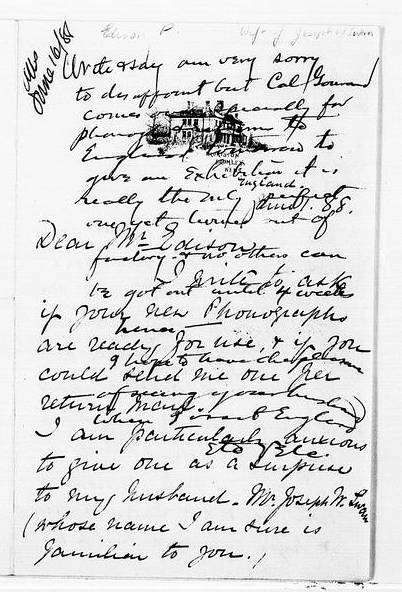 Edison P. Wife of Joseph W Swan
Ans
June 16/88
Write & say am very sorry
to disappoint but Col Gouraud
comes especially for
to
England to
give an Exhibition it is
BROMLEY
KENT
England
really the only perfect
88.
one yet turned out of
Dear Mr Edison
factory & no others can
I write to ask
be got out until 4 weeks
if your new Phonographs
hence
are ready for use, & if you
I hope to have the pleasure
could send me one per
of seeing your husband
return mail.
when I visit England
I am particularly anxious
Etc Etc.
to give one as a surprise
to my husband - Mr. Joseph W. Swan
(whose name I am sure is
familiar to you.)